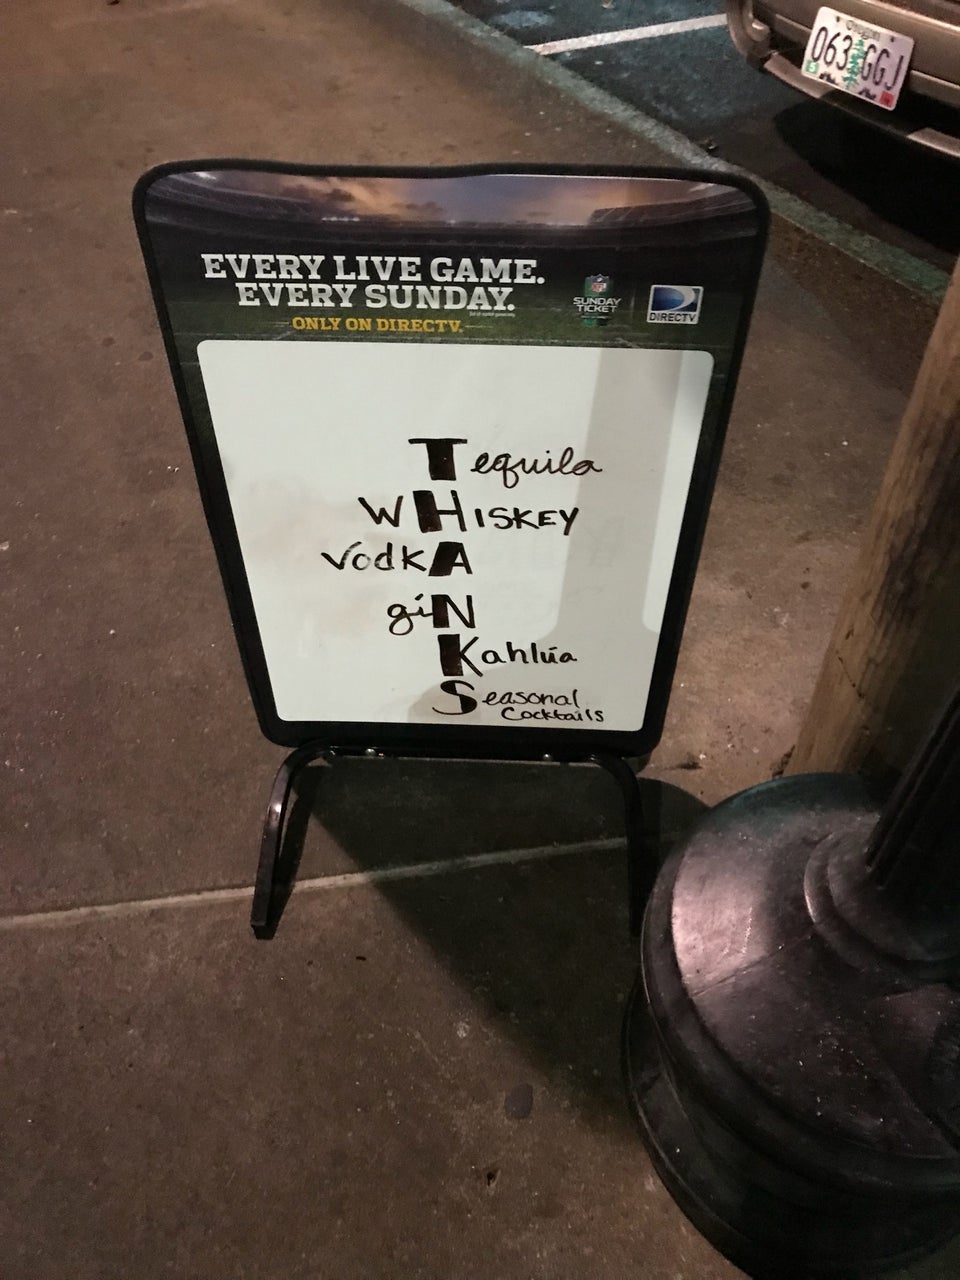 Oregon
063 GGJ
EVERY LIVE GAME.
EVERY SUNDAY.
ONLY ON DIRECTV.
NFL
SUNDAY
TICKET
DIRECTV
Tequila
WHISKEY
VodkA
giN
Kahlúa
Seasonal
Cocktails